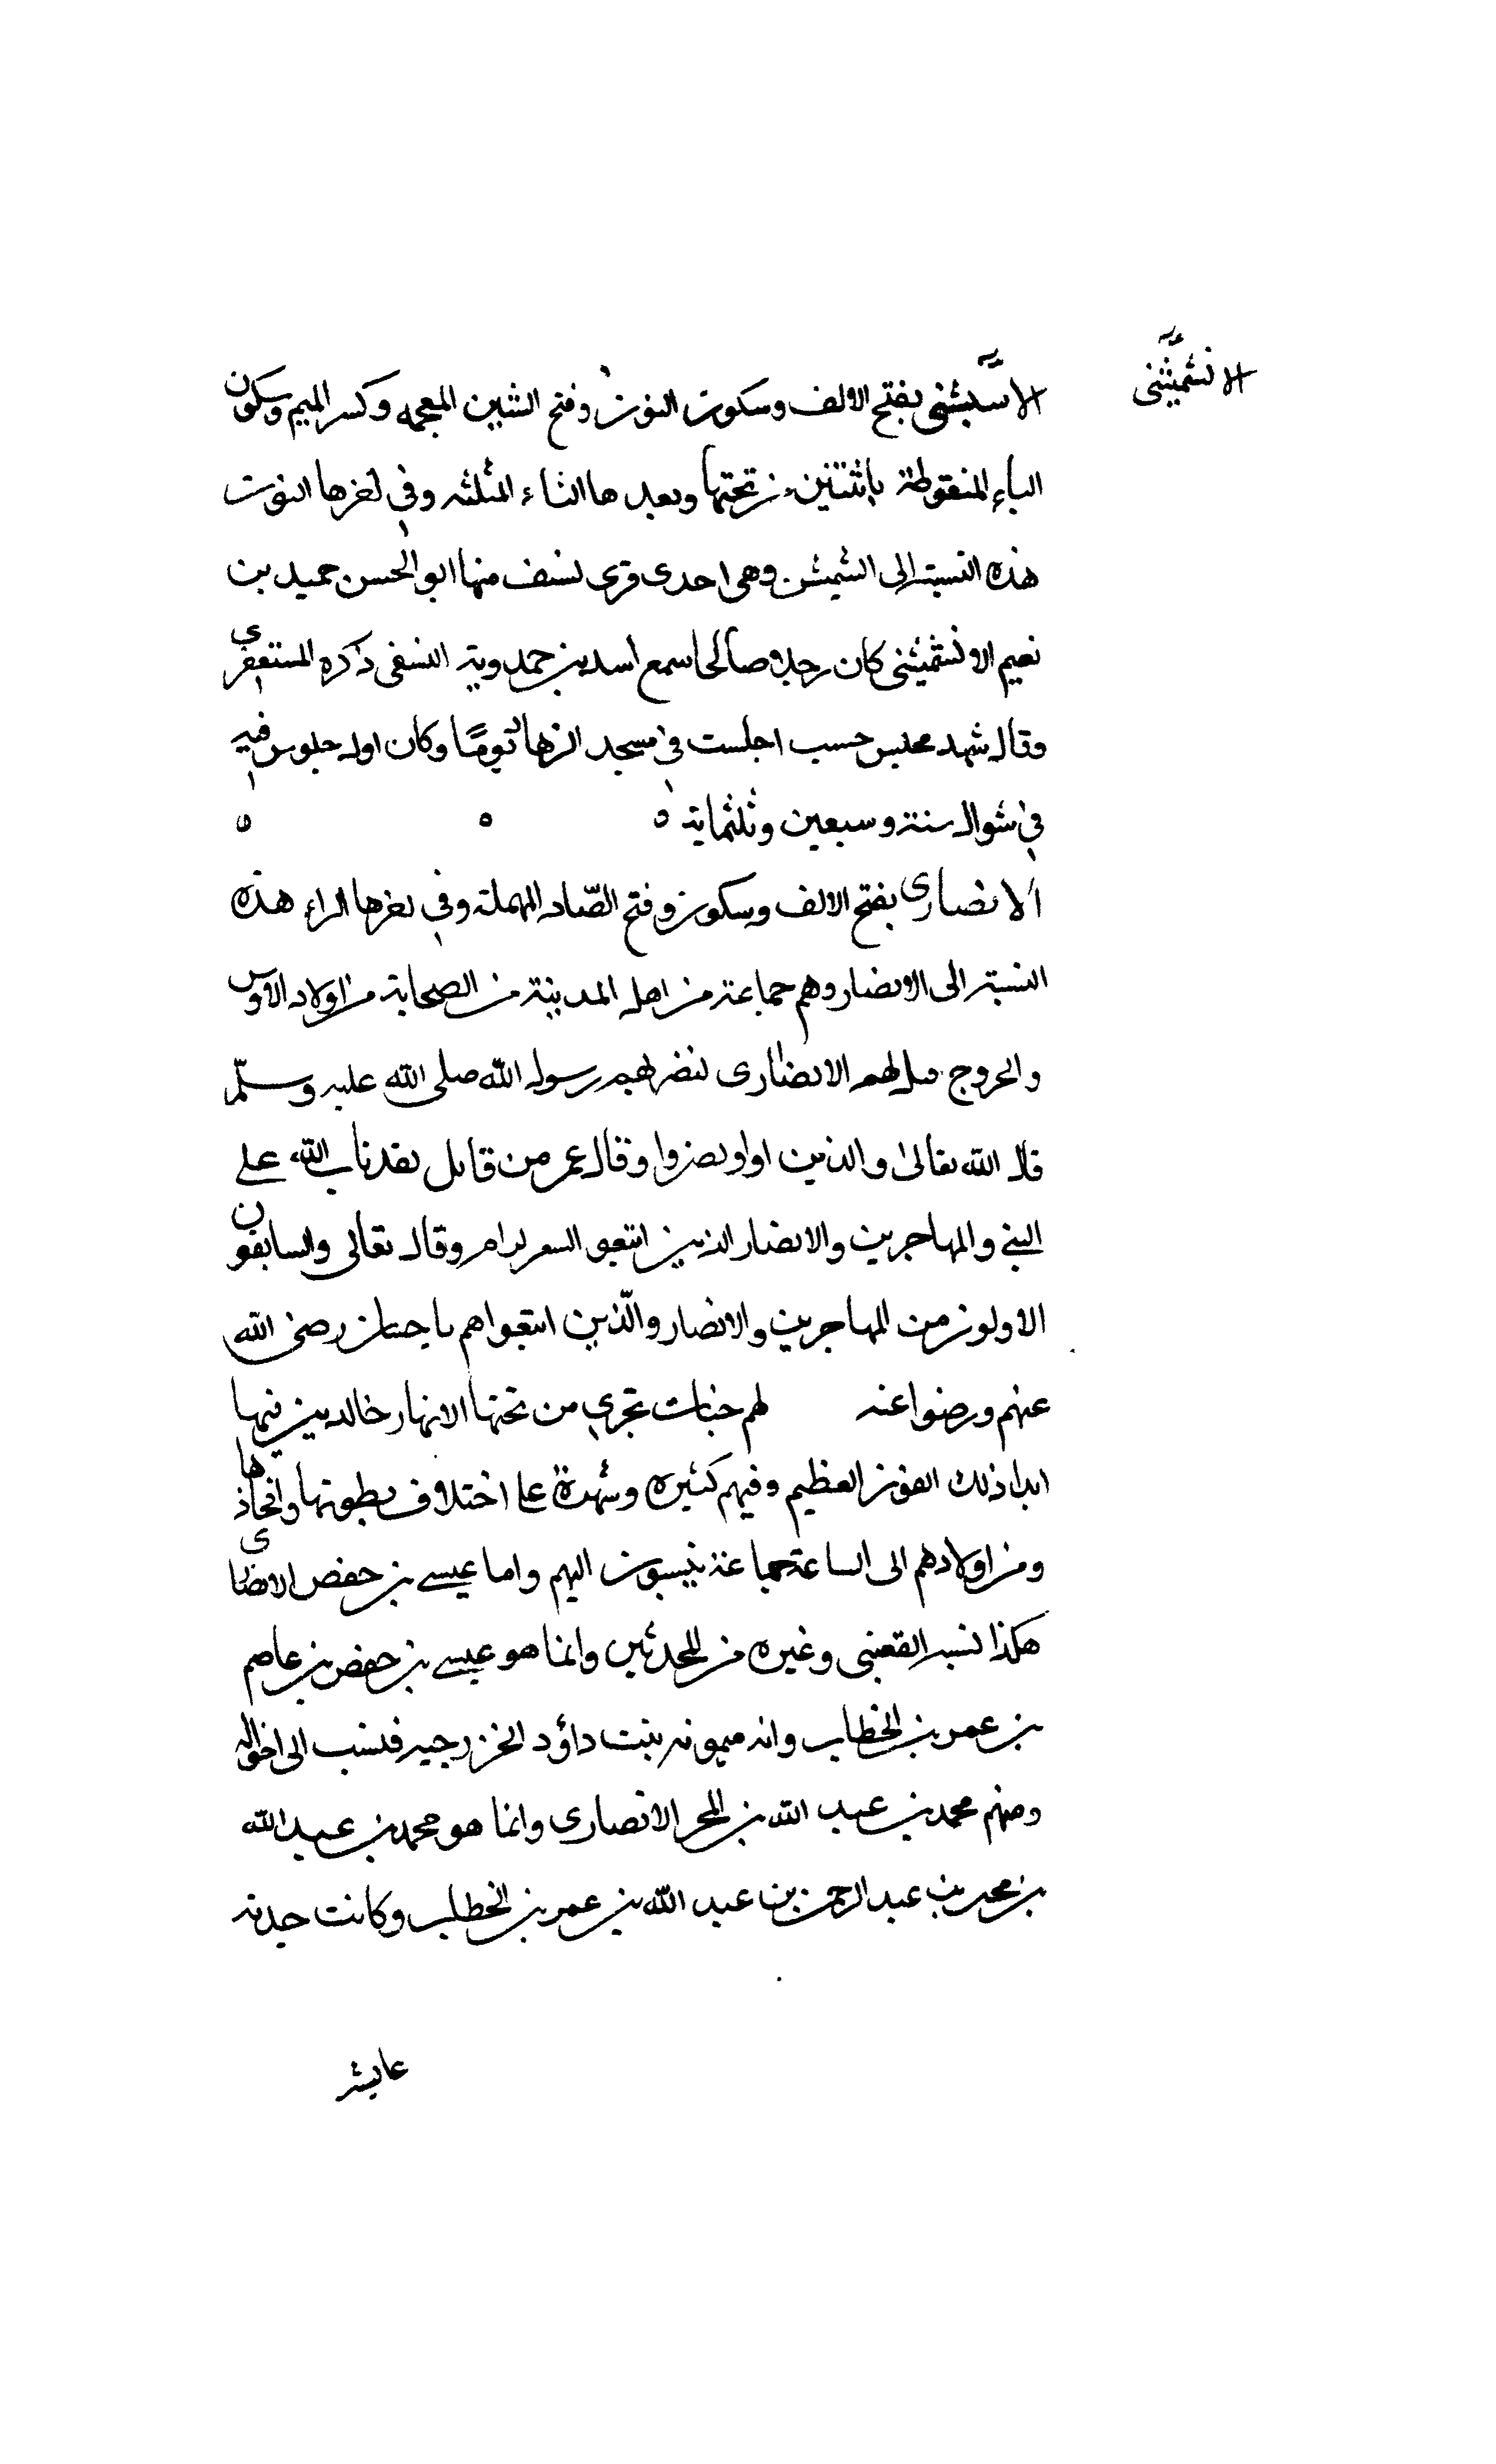 الانشميثنى
الانشميثنى بفتح الالف وسكون النون وفتح الشين المعجمه وكسر الميم وسكون
الياء المنقوطة باثنتين من تحتها وبعدها الثاء المثلثه وفى اخرها النون
هذه النسبة الى انشميثن وهى احدى قرى نسف منها ابو الحسن حميد بن
نعيم الانشميثنى كان رجلا صالحا سمع اسد بن حمدوية النسفى ذكره المستغفرى
وقال شهد مجلس حسب اجلست فى مسجد الزها يوما وكان اول جلوس فيه
فى شوال سنة وسبعين وثلثماية
الانصارى بفتح الالف وسكون وفتح الصاد المهملة وفى اخرها الراء هذه
النسبة الى الانصار وهم جماعة من اهل المدينة من الصحابة من اولاد الاوس
والخروج قيل لهم الانصارى لنصرهم رسول الله صلى الله عليه وسلّم
قال الله تعالى والذين اووا ونصروا وقال عمر من قايل لقد تاب الله على
النبى والمهاجرين والانصار الذين اتبعو وقال تعالى والسابقون
الاولون من المهاجرين والانصار والّذين اتبعواهم باحسان رضى الله
عنهم ورضوا عنه لهم جنات تجرى من تحتها الانهار خالدين فيها
ابدا ذلك الفوز العظيم وفيهم كثيره وشهدة على اختلاف بطونها وافخاذها
ومن اولادهم الى الساعة جماعة ينسبون اليهم واما عيسى بن حفص الانصارى
هكذا نسبه القعنبى وغيره من المحدثين وانما هو عيسى بن حفص بن عاصم
بن عمر بن الخطاب وانه ميمونه بنت داؤد الخزرجيه فنسب الى اخواله
ومنهم محمد بن عبد الله بن المحر الانصارى وانما هو محمد بن عبد الله
بن محمد بن عبد الرحمن بن عبد الله بن عمر بن الخطاب وكانت جدته
عايشه